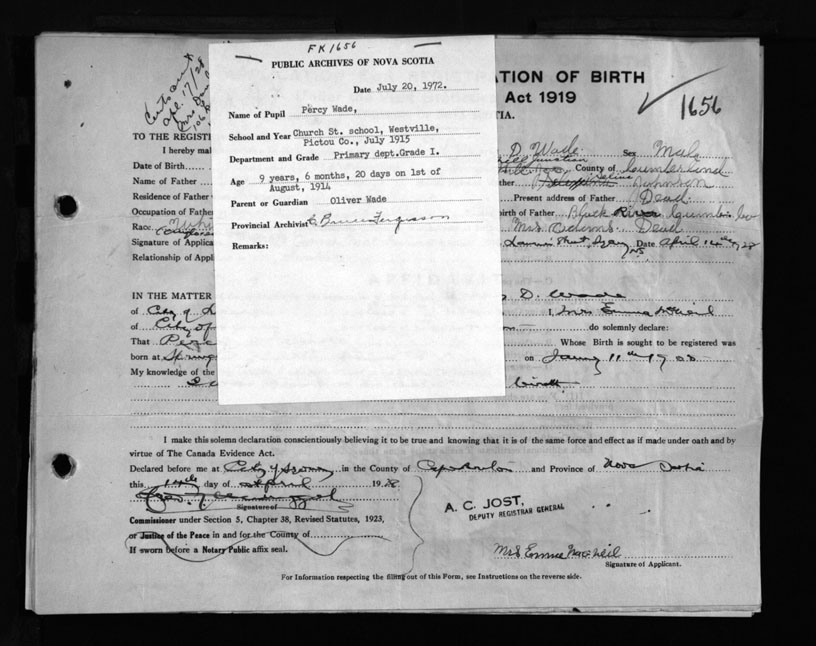 FK 1656
PUBLIC ARCHIVES OF NOVA SCOTIA
Date July 20, 1972.
Name of Pupil Percy Wade,
School and Year Church St. school, Westville,
Pictou Co., July 1915
Department and Grade Primary dept. Grade I.
Age 9 years, 6 months, 20 days on 1st of
August, 1914
Parent or Guardian Oliver Wade
Provincial Archivist C. Bruce Fergusson
Remarks:
ATION OF BIRTH
Act 1919
TIA.
1656
TO THE REGISTR
I hereby mak
D. Wade Sex Male
Date of Birth County of Cumberland
Name of Father
Residence of Father Present address of Father Dead
Occupation of Father irth of Father Black River
Race Mrs Dead
Signature of Applica Date April 14th
Relationship of Appl
IN THE MATTER D. Wade
of City of I, Mrs Emma
of City of do solemnly declare:
That Perc Whose Birth is sought to be registered was
born at Spring on 11th
My knowledge of the
I make this solemn declaration conscientiously believing it to be true and knowing that it is of the same force and effect as if made under oath and by
virtue of The Canada Evidence Act.
Declared before me at City of Sydney in the County of Cape Breton and Province of Nova Scotia
this day of April 1928
Signature of
Commissioner under Section 5, Chapter 38, Revised Statutes, 1923,
or Justice of the Peace in and for the County of
If sworn before a Notary Public affix seal.
A. C. JOST,
DEPUTY REGISTRAR GENERAL
Mrs Emma MacNeil
Signature of Applicant.
For Information respecting the filling out of this Form, see Instructions on the reverse side.